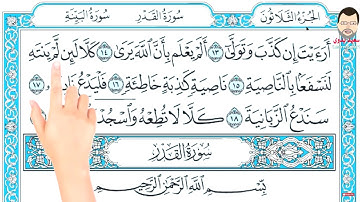 الجزء الثلاثون سورة القدر سورة البينة
أَرَءَيْتَ إِن كَذَّبَ وَتَوَلَّىٰٓ ١٣ أَلَمْ يَعْلَم بِأَنَّ ٱللَّهَ يَرَىٰ ١٤ كَلَّا لَئِن لَّمْ يَنتَهِ
لَنَسْفَعًۢا بِٱلنَّاصِيَةِ ١٥ نَاصِيَةٍ كَٰذِبَةٍ خَاطِئَةٍ ١٦ فَلْيَدْعُ ١٧
سَنَدْعُ ٱلزَّبَانِيَةَ ١٨ كَلَّا لَا تُطِعْهُ وَٱسْجُدْ
سورة القدر
بِسْمِ ٱللَّهِ ٱلرَّحْمَٰنِ ٱلرَّحِيمِ